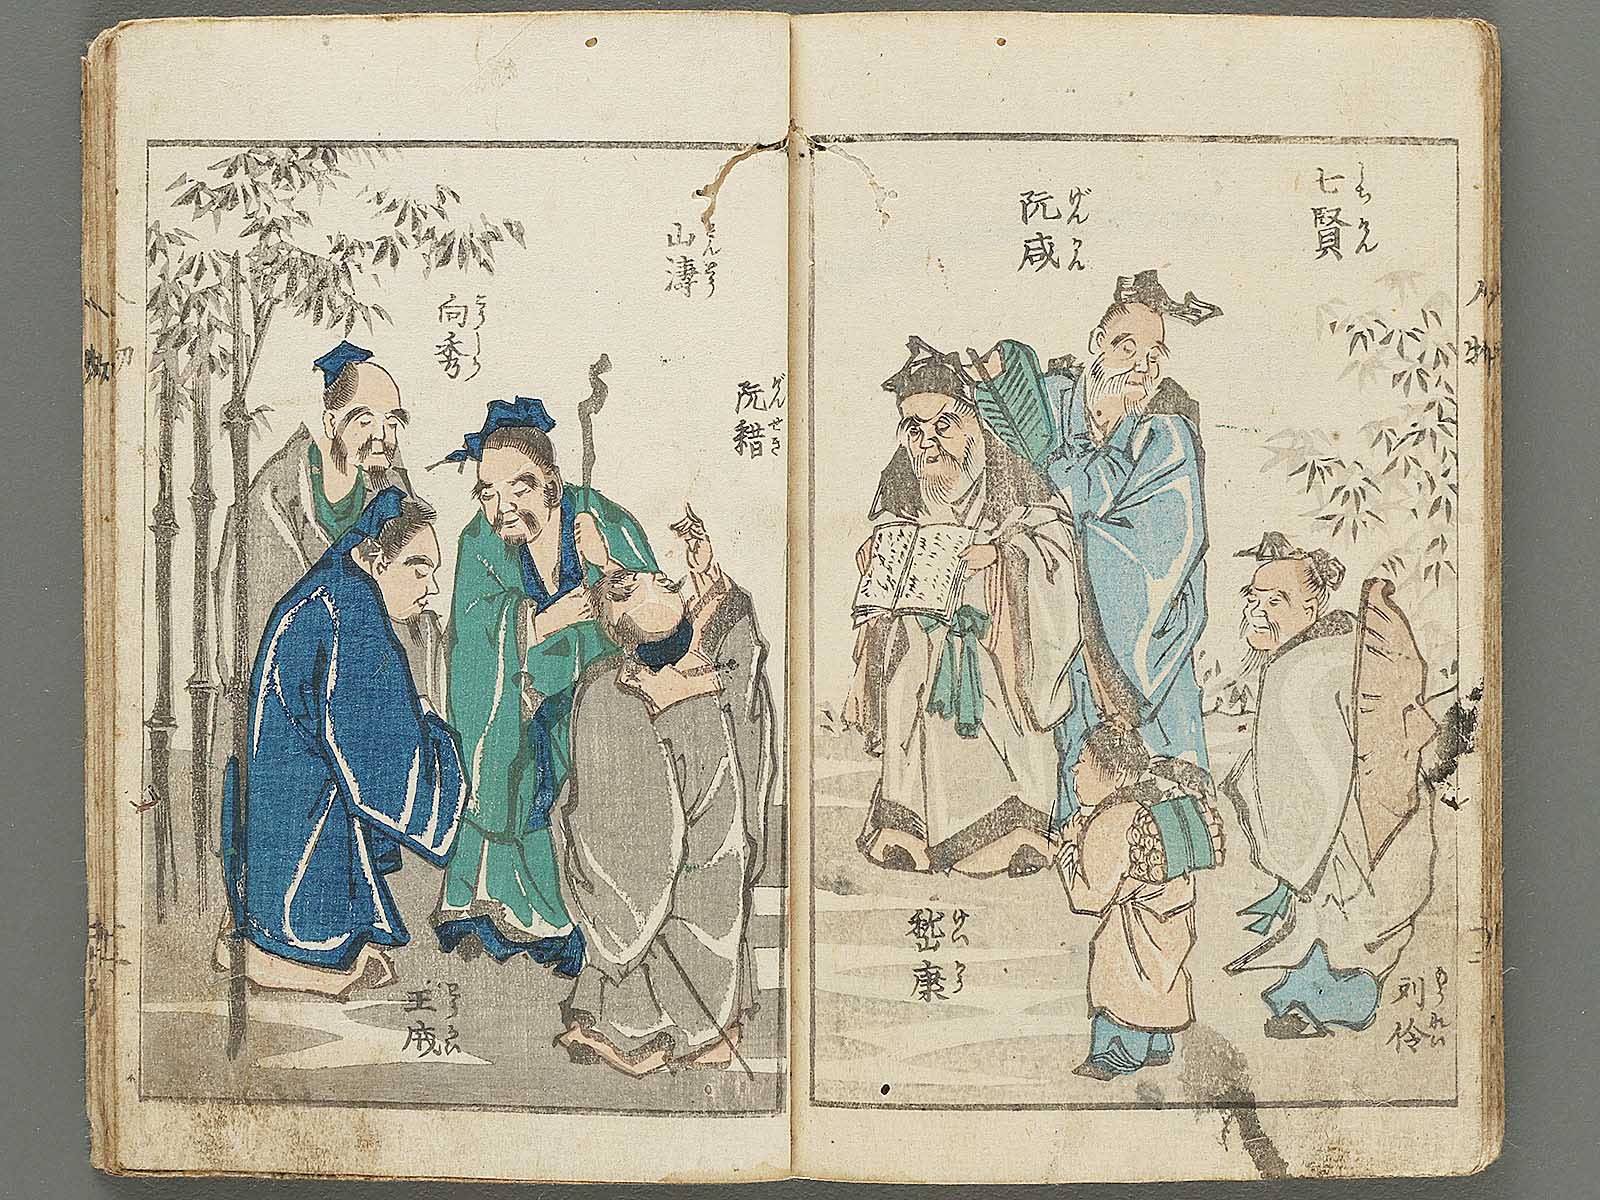 七賢
しちけん
阮咸
げんかん
嵆康
けいかう
列伶
りうれい
阮籍
げんせき
山濤
さんとう
向秀
こうしう
王戎
人物